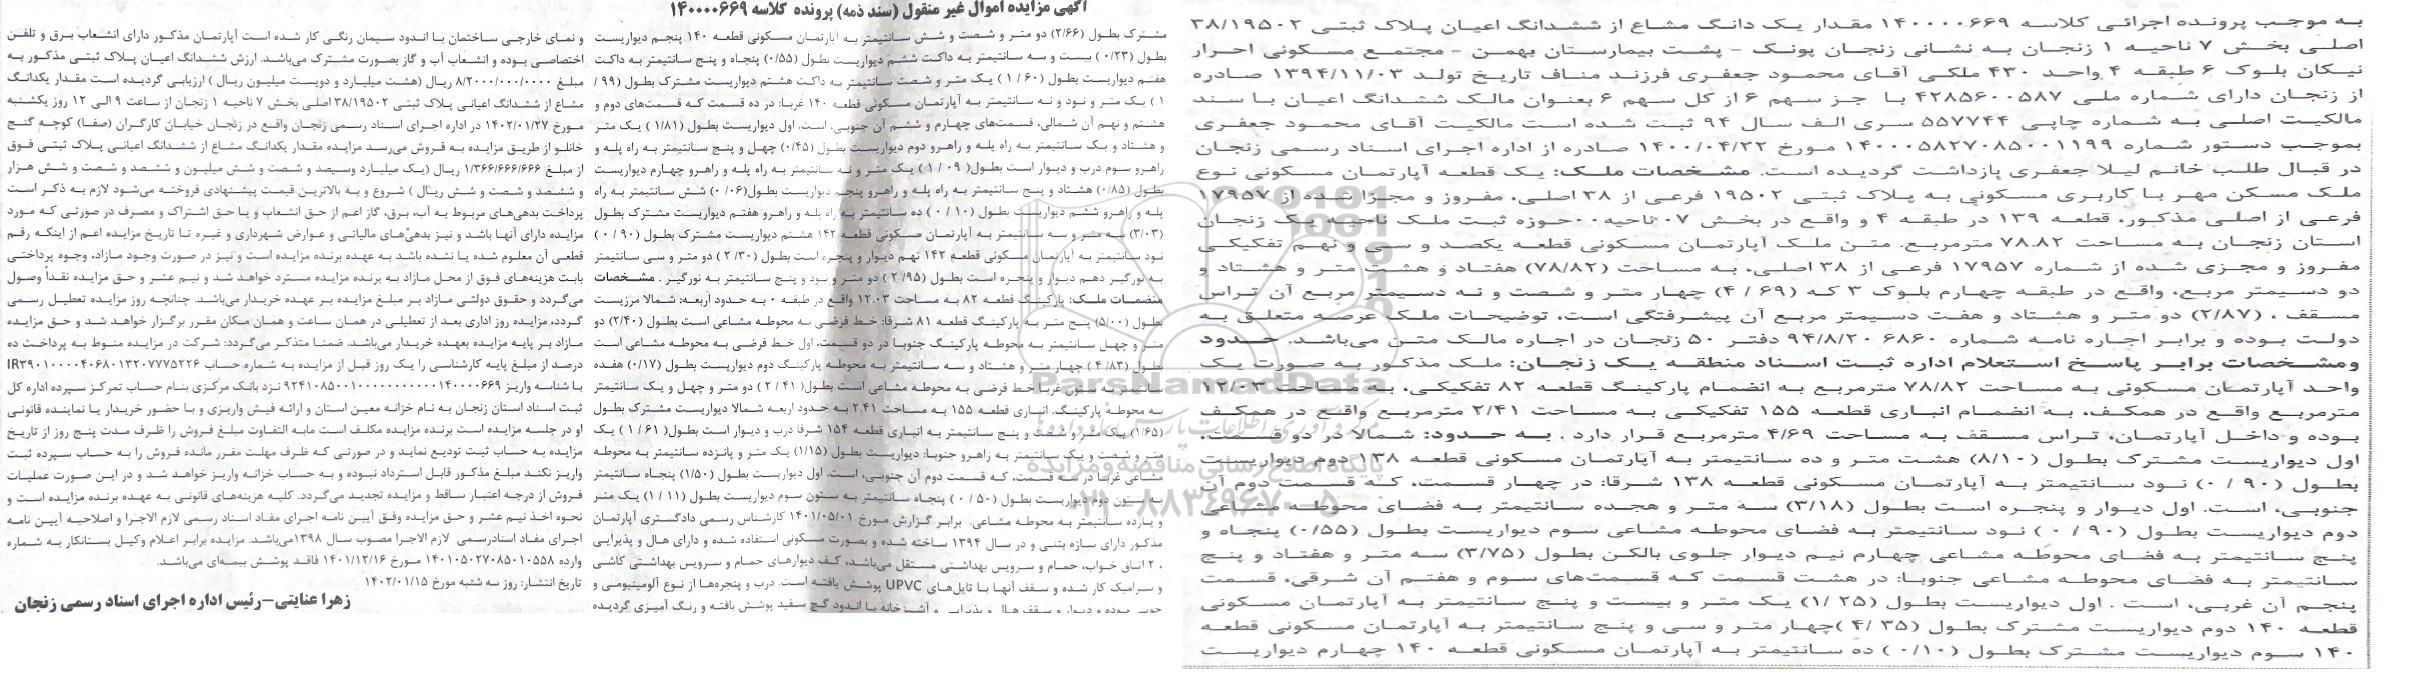 آگهی مزایده اموال غیر منقول (سند ذمه) پرونده کلاسه ۱۴۰۰۰۰۶۶۹
به موجب پرونده اجرائی کلاسه ۱۴۰۰۰۰۶۶۹ مقدار یک دانگ مشاع از ششدانگ اعیان پلاک ثبتی ۳۸/۱۹۵۰۲
اصلی بخش ۷ ناحیه ۱ زنجان به نشانی زنجان پونک - پشت بیمارستان بهمن - مجتمع مسکونی احرار
نیکان بلوک ۶ طبقه ۴ واحد ۴۳۰ ملکی آقای محمود جعفری فرزند مناف تاریخ تولد ۱۳۹۴/۱۱/۰۳ صادره
از زنجان دارای شماره ملی ۴۲۸۵۶۰۰۵۸۷ با جز سهم ۶ از کل سهم ۶ بعنوان مالک ششدانگ اعیان با سند
مالکیت اصلی به شماره چاپی ۵۵۷۷۴۴ سری الف سال ۹۴ ثبت شده است مالکیت آقای محمود جعفری
بموجب دستور شماره ۱۴۰۰۰۵۸۲۷۰۸۵۰۰۱۱۹۹ مورخ ۱۴۰۰/۰۴/۲۲ صادره از اداره اجرای اسناد رسمی زنجان
در قبال طلب خانم لیلا جعفری بازداشت گردیده است. مشخصات ملک: یک قطعه آپارتمان مسکونی نوع
ملک مسکن مهر با کاربری مسکونی به پلاک ثبتی ۱۹۵۰۲ فرعی از ۳۸ اصلی، مفروز و مجزا شده از ۱۷۹۵۷
فرعی از اصلی مذکور، قطعه ۱۳۹ در طبقه ۴ و واقع در بخش ۰۷ ناحیه ۰۰ حوزه ثبت ملک ناحیه یک زنجان
استان زنجان به مساحت ۷۸.۸۲ مترمربع. متن ملک آپارتمان مسکونی قطعه یکصد و سی و نهم تفکیکی
مفروز و مجزی شده از شماره ۱۷۹۵۷ فرعی از ۳۸ اصلی، به مساحت (۷۸/۸۲) هفتاد و هشت متر و هشتاد و
دو دسیمتر مربع، واقع در طبقه چهارم بلوک ۳ که (۴/۶۹) چهار متر و شصت و نه دسیمتر مربع آن تراس
مسقف ، (۲/۸۷) دو متر و هشتاد و هفت دسیمتر مربع آن پیشرفتگی است، توضیحات ملک عرصه متعلق به
دولت بوده و برابر اجاره نامه شماره ۶۸۶۰ ۹۴/۸/۲۰ دفتر ۵۰ زنجان در اجاره مالک متن می‌باشد. حدود
ومشخصات برابر پاسخ استعلام اداره ثبت اسناد منطقه یک زنجان: ملک مذکور به صورت یک
واحد آپارتمان مسکونی به مساحت ۷۸/۸۲ مترمربع به انضمام پارکینگ قطعه ۸۲ تفکیکی، به مساحت ۱۲/۰۳
مترمربع واقع در همکف، به انضمام انباری قطعه ۱۵۵ تفکیکی به مساحت ۲/۴۱ مترمربع واقع در همکف
بوده و داخل آپارتمان، تراس مسقف به مساحت ۴/۶۹ مترمربع قرار دارد . به حدود: شمالا در دو قسمت،
اول دیواریست مشترک بطول (۸/۱۰) هشت متر و ده سانتیمتر به آپارتمان مسکونی قطعه ۱۳۸ دوم دیواریست
بطول (۰/۹۰) نود سانتیمتر به آپارتمان مسکونی قطعه ۱۳۸ شرقا: در چهار قسمت، که قسمت دوم آن
جنوبی، است. اول دیوار و پنجره است بطول (۳/۱۸) سه متر و هجده سانتیمتر به فضای محوطه مشاعی
دوم دیواریست بطول (۰/۹۰) نود سانتیمتر به فضای محوطه مشاعی سوم دیواریست بطول (۰/۵۵) پنجاه و
پنج سانتیمتر به فضای محوطه مشاعی چهارم نیم دیوار جلوی بالکن بطول (۳/۷۵) سه متر و هفتاد و پنج
سانتیمتر به فضای محوطه مشاعی جنوبا: در هشت قسمت که قسمت‌های سوم و هفتم آن شرقی، قسمت
پنجم آن غربی، است . اول دیواریست بطول (۱/۲۵) یک متر و بیست و پنج سانتیمتر به آپارتمان مسکونی
قطعه ۱۴۰ دوم دیواریست مشترک بطول (۴/۳۵) چهار متر و سی و پنج سانتیمتر به آپارتمان مسکونی قطعه
۱۴۰ سوم دیواریست مشترک بطول (۰/۱۰) ده سانتیمتر به آپارتمان مسکونی قطعه ۱۴۰ چهارم دیواریست
مشترک بطول (۲/۶۶) دو متر و شصت و شش سانتیمتر به آپارتمان مسکونی قطعه ۱۴۰ پنجم دیواریست
بطول (۰/۲۳) بیست و سه سانتیمتر به داکت ششم دیواریست بطول (۰/۵۵) پنجاه و پنج سانتیمتر به داکت
هفتم دیواریست بطول (۱/۶۰) یک متر و شصت سانتیمتر به داکت هشتم دیواریست مشترک بطول (۹۹/
۱) یک متر و نود و نه سانتیمتر به آپارتمان مسکونی قطعه ۱۴۰ غربا: در ده قسمت که قسمت‌های دوم و
هشتم و نهم آن شمالی، قسمت‌های چهارم و ششم آن جنوبی، است. اول دیواریست بطول (۱/۸۱) یک متر
و هشتاد و یک سانتیمتر به راه پله و راهرو دوم دیواریست بطول (۰/۴۵) چهل و پنج سانتیمتر به راه پله و
راهرو سوم درب و دیوار است بطول (۱/۰۹) یک متر و نه سانتیمتر به راه پله و راهرو چهارم دیواریست
بطول (۰/۸۵) هشتاد و پنج سانتیمتر به راه پله و راهرو پنجم دیواریست بطول (۰/۰۶) شش سانتیمتر به راه
پله و راهرو ششم دیواریست بطول (۰/۱۰) ده سانتیمتر به راه پله و راهرو هفتم دیواریست مشترک بطول
(۳/۰۳) سه متر و سه سانتیمتر به آپارتمان مسکونی قطعه ۱۴۲ هشتم دیواریست مشترک بطول (۰/۹۰)
نود سانتیمتر به آپارتمان مسکونی قطعه ۱۴۲ نهم دیوار و پنجره است بطول (۲/۳۰) دو متر و سی سانتیمتر
به نورگیر دهم دیوار و پنجره است بطول (۲/۹۵) دو متر و نود و پنج سانتیمتر به نورگیر . مشخصات
منضمات ملک: پارکینگ قطعه ۸۲ به مساحت ۱۲.۰۳ واقع در طبقه ۰ به حدود اربعه: شمالا مرزیست
بطول (۵/۰۰) پنج متر به پارکینگ قطعه ۸۱ شرقا: خط فرضی به محوطه مشاعی است بطول (۲/۴۰) دو
متر و چهل سانتیمتر به محوطه پارکینگ جنوبا در دو قسمت، اول خط فرضی به محوطه مشاعی است
بطول (۴/۸۳) چهار متر و هشتاد و سه سانتیمتر به محوطه پارکینگ دوم دیواریست بطول (۰/۱۷) هفده
سانتیمتر به ستون غربا خط فرضی به محوطه مشاعی است بطول (۲/۴۱) دو متر و چهل و یک سانتیمتر
به محوطه پارکینگ. انباری قطعه ۱۵۵ به مساحت ۲.۴۱ به حدود اربعه شمالا دیواریست مشترک بطول
(۱/۶۵) یک متر و شصت و پنج سانتیمتر به انباری قطعه ۱۵۴ شرقا درب و دیوار است بطول (۱/۶۱) یک
متر و شصت و یک سانتیمتر به راهرو جنوبا: دیواریست بطول (۱/۱۵) یک متر و پانزده سانتیمتر به محوطه
مشاعی غربا در سه قسمت، که قسمت دوم آن جنوبی، است. اول دیواریست بطول (۱/۵۰) پنجاه سانتیمتر
به ستون دوم دیواریست بطول (۰/۵۰) پنجاه سانتیمتر به ستون سوم دیواریست بطول (۱/۱۱) یک متر
و یازده سانتیمتر به محوطه مشاعی. برابر گزارش مورخ ۱۴۰۱/۰۵/۰۱ کارشناس رسمی دادگستری آپارتمان
مذکور دارای سازه بتنی و در سال ۱۳۹۴ ساخته شده و بصورت مسکونی استفاده شده و دارای هال و پذیرایی
، ۲ اتاق خواب، حمام و سرویس بهداشتی مستقل می‌باشد، کف دیوارهای حمام و سرویس بهداشتی کاشی
و سرامیک کار شده و سقف آنها با تایل‌های UPVC پوشش یافته است. درب و پنجره‌ها از نوع آلومینیومی و
چوبی بوده و دیوار و سقف هال و پذیرایی و آشپزخانه با اندود گچ سفید پوشش یافته و رنگ آمیزی گردیده
و نمای خارجی ساختمان با اندود سیمان رنگی کار شده است آپارتمان مذکور دارای انشعاب برق و تلفن
اختصاصی بوده و انشعاب آب و گاز بصورت مشترک می‌باشد. ارزش ششدانگ اعیان پلاک ثبتی مذکور به
مبلغ ۸/۲۰۰۰/۰۰۰/۰۰۰۰ ریال (هشت میلیارد و دویست میلیون ریال) ارزیابی گردیده است مقدار یکدانگ
مشاع از ششدانگ اعیانی پلاک ثبتی ۳۸/۱۹۵۰۲ اصلی بخش ۷ ناحیه ۱ زنجان از ساعت ۹ الی ۱۲ روز یکشنبه
مورخ ۱۴۰۲/۰۱/۲۷ در اداره اجرای اسناد رسمی زنجان واقع در زنجان خیابان کارگران (صفا) کوچه گنج
خانلو از طریق مزایده به فروش می‌رسد مزایده مقدار یکدانگ مشاع از ششدانگ اعیانی پلاک ثبتی فوق
از مبلغ ۱/۳۶۶/۶۶۶/۶۶۶ ریال (یک میلیارد وسیصد و شصت و شش میلیون و ششصد و شصت و شش هزار
و ششصد و شصت و شش ریال ) شروع و به بالاترین قیمت پیشنهادی فروخته می‌شود لازم به ذکر است
پرداخت بدهی‌های مربوط به آب، برق، گاز اعم از حق انشعاب و یا حق اشتراک و مصرف در صورتی که مورد
مزایده دارای آنها باشد و نیز بدهی‌های مالیاتی و عوارض شهرداری و غیره تا تاریخ مزایده اعم از اینکه رقم
قطعی آن معلوم شده یا نشده باشد به عهده برنده مزایده است و نیز در صورت وجود مازاد، وجوه پرداختی
بابت هزینه‌های فوق از محل مازاد به برنده مزایده مسترد خواهد شد و نیم عشر و حق مزایده نقداً وصول
می‌گردد و حقوق دولتی مازاد بر مبلغ مزایده بر عهده خریدار می‌باشد. چنانچه روز مزایده تعطیل رسمی
گردد، مزایده روز اداری بعد از تعطیلی در همان ساعت و همان مکان مقرر برگزار خواهد شد و حق مزایده
مازاد بر پایه مزایده بعهده خریدار می‌باشد. ضمنا متذکر می‌گردد: شرکت در مزایده منوط به پرداخت ده
درصد از مبلغ پایه کارشناسی را یک روز قبل از مزایده به شماره حساب IR۳۹۰۱۰۰۰۰۴۰۶۸۰۱۳۲۰۷۷۷۵۲۲۶
با شناسه واریز نزد بانک مرکزی بنام حساب تمرکز سپرده اداره کل
ثبت اسناد استان زنجان به نام خزانه معین استان و ارائه فیش واریزی و با حضور خریدار یا نماینده قانونی
او در جلسه مزایده است برنده مزایده مکلف است مابه التفاوت مبلغ فروش را ظرف مدت پنج روز از تاریخ
مزایده به حساب ثبت تودیع نماید و در صورتی که ظرف مهلت مقرر مانده فروش را به حساب سپرده ثبت
واریز نکنند مبلغ مذکور قابل استرداد نبوده و به حساب خزانه واریز خواهد شد و در این صورت عملیات
فروش از درجه اعتبار ساقط و مزایده تجدید می‌گردد. کلیه هزینه‌های قانونی به عهده برنده مزایده است و
نحوه اخذ نیم عشر و حق مزایده وفق آیین نامه اجرای مفاد اسناد رسمی لازم الاجرا و اصلاحیه آیین نامه
اجرای مفاد اسنادرسمی لازم الاجرا مصوب سال ۱۳۹۸می‌باشد. مزایده برابر اعلام وکیل بستانکار به شماره
وارده ۱۴۰۱۰۵۰۲۷۰۸۵۰۱۰۵۵۸ مورخ ۱۴۰۱/۱۲/۱۶ فاقد پوشش بیمه‌ای می‌باشد.
تاریخ انتشار: روز سه شنبه مورخ ۱۴۰۲/۰۱/۱۵
زهرا عنایتی-رئیس اداره اجرای اسناد رسمی زنجان
ParsNamadData
پایگاه اطلاع رسانی مناقصه و مزایده